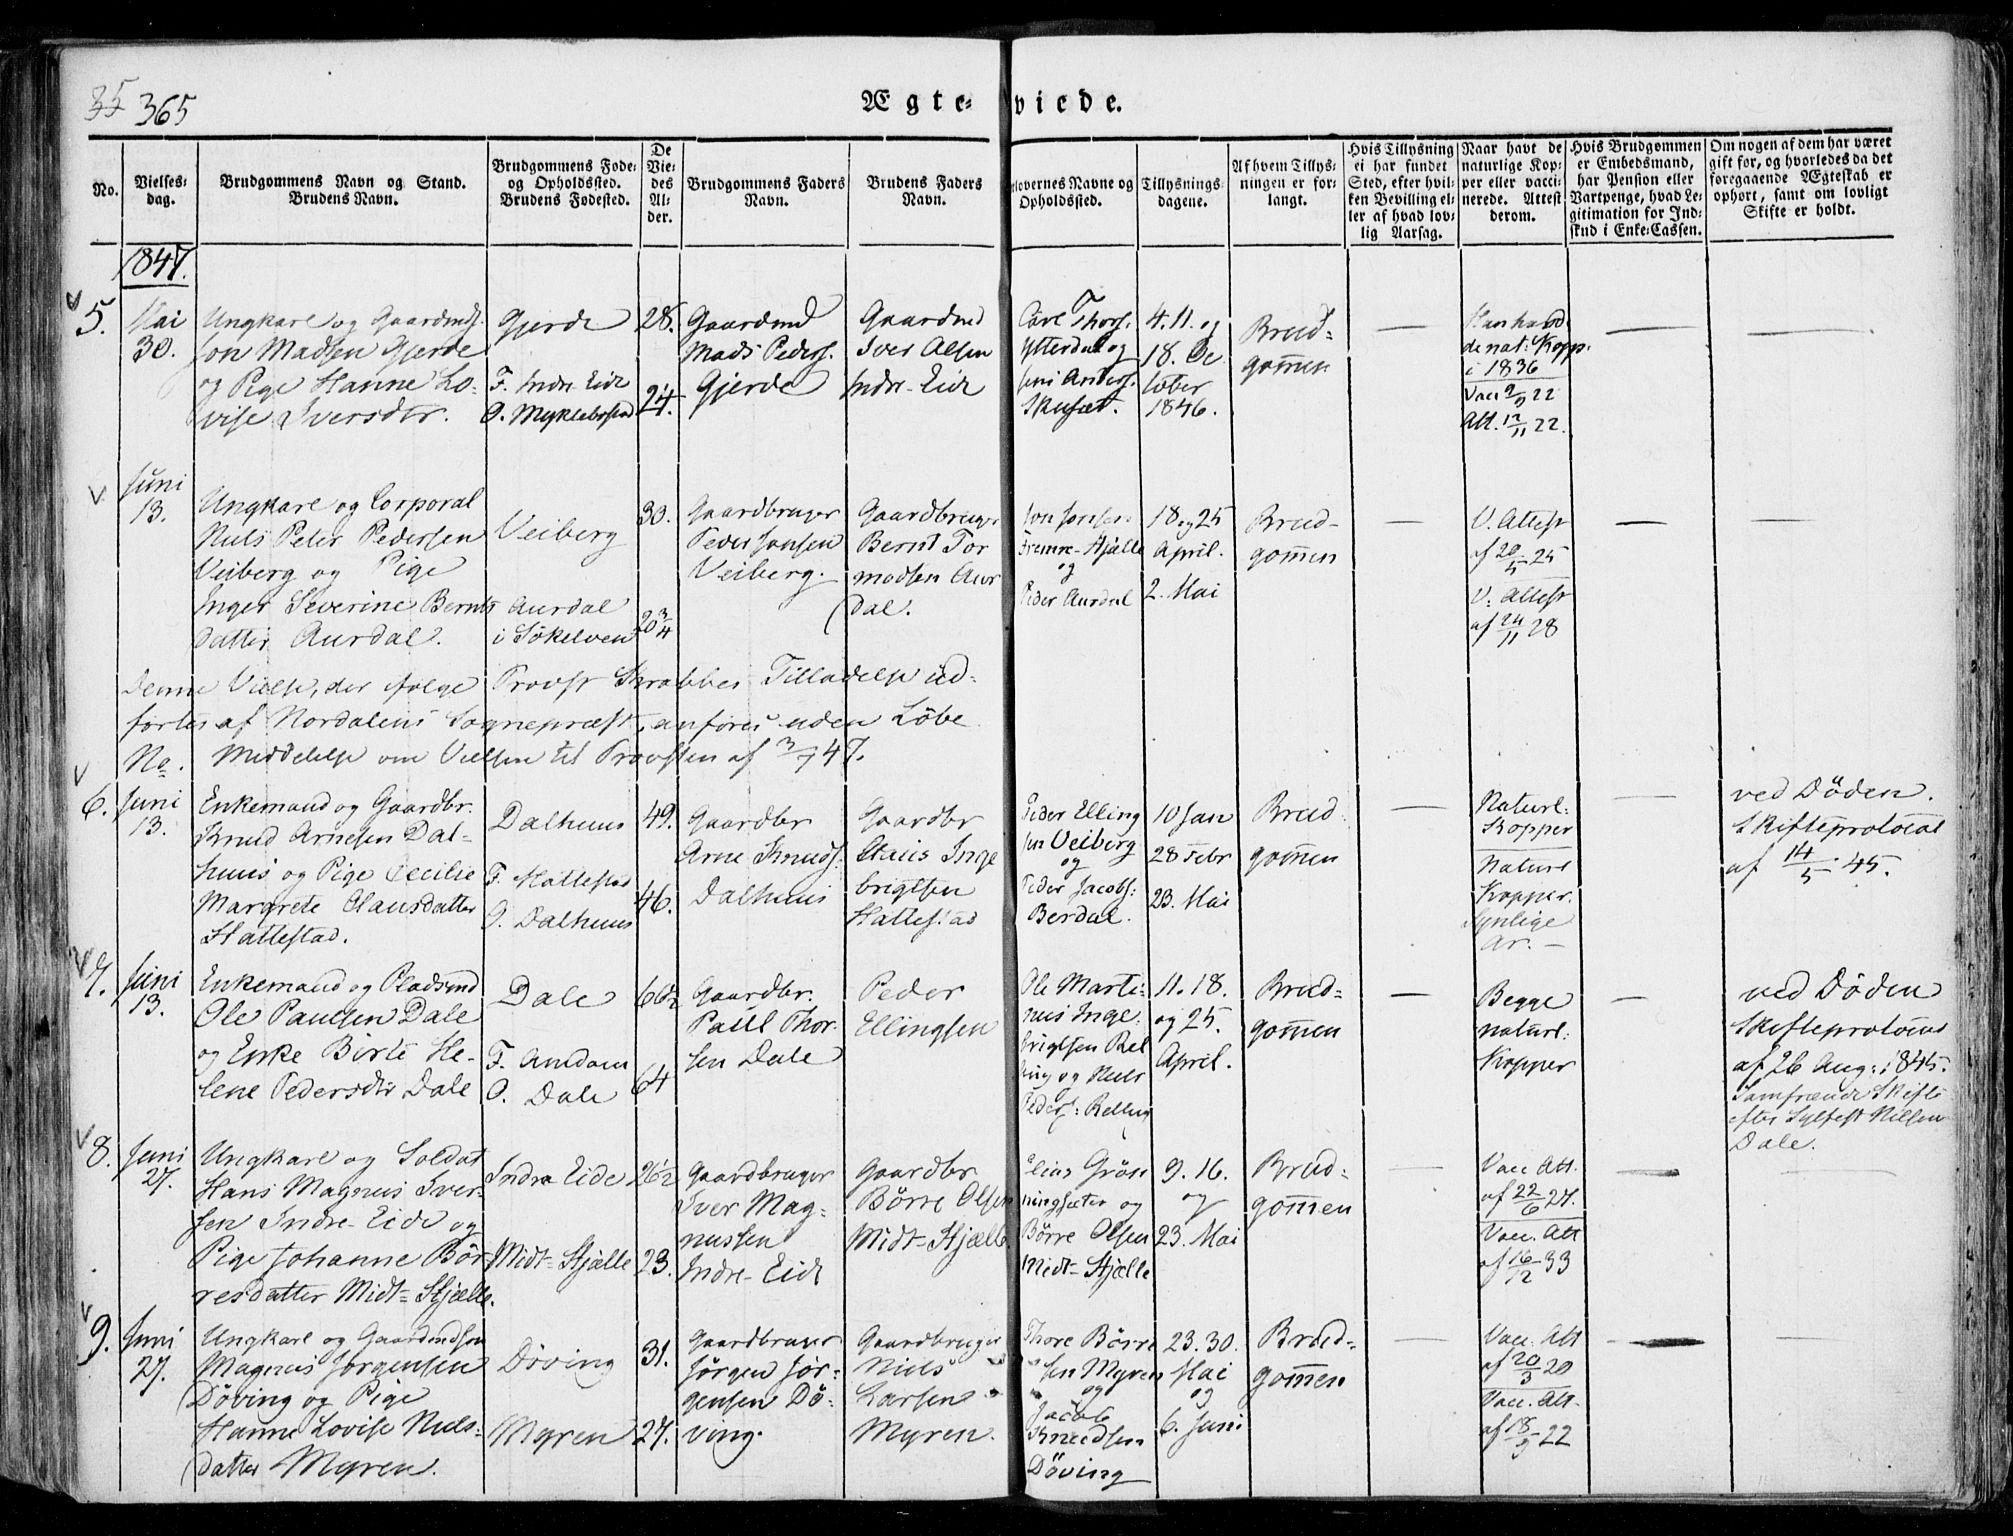 35 365
Ægte-viede.
No.
Vielses-
dag.
Brudgommens Navn og Stand.
Brudens Navn.
Brudgommens Føde-
og Opholdssted.
Brudens Fødested.
De
Vie-
des
Al-
der.
Brudgommens Faders
Navn.
Brudens Faders
Navn.
lovernes Navne og
Opholdssted.
Tillysnings-
dagene.
Af hvem Tillys-
ningen er for-
langt.
Hvis Tillysning
ei har fundet
Sted, efter hvil-
ken Bevilling el-
ler af hvad lov-
lig Aarsag.
Naar havt de
naturlige Kop-
per eller vacci-
nerede. Attest
derom.
Hvis Brudgommen
er Embedsmand,
har Pension eller
Vartpenge, hvad Le-
gitimation for Ind-
skud i Enke-Cassen.
Om nogen af dem har været
gift før, og hvorledes da det
foregaaende Ægteskab er
ophørt, samt om lovligt
Skifte er holdt.
1847.
5.
Mai
30.
Ungkarl og Gaardmds.
Jon Madsen Gjerde
og Pige Hanne Lo-
vise Iversdtr.
Gjerde
F. Indre-Eide
O. Myklebostad
28.
24.
Gaardmd
Mads Peders.
Gjerde
Gaardmd
Iver Olsen
Indre-Eide
Carl Thors.
Ytterdal og
Jens Anders.
Skuset.
4. 11. og
18. Oc
tober
1846.
Brud-
gommen
Han havd
de nat: Kopp.
i 1836
Vacc 9/9 22
Att. 12/11 22.
Juni
13.
Ungkarl og Corporal
Niels Peter Pedersen
Veiberg og Pige
Inger Severine Bernts
datter Aurdal.
Veiberg
Aurdal
i Sökelven
30.
20 3/4
Gaardbruger
Peder Jonsen
Veiberg.
Gaardbruger
Bernt Tor
modsen Aur
dal.
Jon Jonsen
Fremre-Hjälle
og
Peder Aurdal
18. og 25
April.
2. Mai
Brud-
gommen
V. Attest
af 20/5 25
V: Attest
af 24/11 28
Denne Vielse, der ifølge Provst Krabbes Tilladelse ud-
førtes af Nordalens Sognepræst, anføres uden Löbe
No. Meddelelse om Vielsen til Provsten af 3/7 47.
6.
Juni
13.
Enkemand og Gaardbr.
Knud Arnesen Dal-
huus og Pige Cecilie
Margrete Clausdatter
Hattestad.
Dalhuus
F. Hattestad
O. Dalhuus
49.
46.
Gaardbr
Arne Knuds.
Dalhuus
Gaardbr
Claus Inge
brigtsen
Hattestad
Peder Elling
sen Veiberg
og
Peder Jacobs:
Berdal.
10 Jan
28 Febr
23. Mai
Brud
gommen
Naturl:
Kopper
Naturl
Kopper.
Synlige
Ar. —
ved Döden.
Skifteprotocol
af 14/5 45.
7.
Juni
13.
Enkemand og Pladsmd
Ole Paulsen Dale
og Enke Birte He-
lene Pedersdtr Dale
Dale
F. Amdam
O. Dale
66½
64
Gaardbr.
Paul Thor-
sen Dale
Peder
Ellingsen
Ole Marti-
nus Inge-
brigtsen Rel
ling og Niels
Peders: Relling
11. 18.
og 25.
April.
Brud-
gommen
Begge
naturl:
Kopper
ved Döden
Skifteprotocol
af 26 Aug: 1845.
Samfrænde Skifte
efter Sylfest Nilsen
Dale.
8.
Juni
27.
Ungkarl og Soldat
Hans Magnus Iver-
sen Indre-Eide og
Pige Johanne Bör-
resdatter Midt-Hjælle.
Indre Eide
Midt-Hjælle
26½
23.
Gaardbruger
Iver Mag-
nussen
Indre-Eide
Gaardbr
Börre Olsen
Midt-Hjælle
Elias Grön
ningsæter og
Börre Olsen
Midt-Hjælle
9. 16.
og
23. Mai
Brud-
gommen
Vacc Att.
af 22/6 27.
Vacc. Att
af 16/12 33
9.
Juni
27.
Ungkarl og Gaardmdsøn
Magnus Jørgensen
Döving og Pige
Hanne Lovise Niels-
datter Myren.
Döving
Myren
31.
27.
Gaardbruger
Jørgen Jör-
gensen Dö-
ving.
Gaardbruger
Niels
Larsen
Myren.
Thore Börre
sen Myren
og
Jacob
Knudsen
Döving
23. 30.
Mai
og
6. Juni
Brud-
gommen
Vacc. Att
af 20/3 20
Vacc. Att.
af 18/9 22